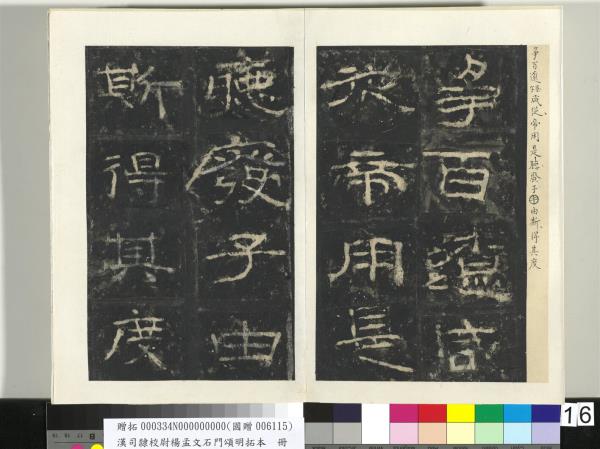 爭百遼咸從帝用是聽廢子由斯得其度
爭百遼咸
從帝用是
聽廢子由
斯得其度
贈拓 000334N000000000(國贈 006115)
漢司隸校尉楊孟文石門頌明拓本 冊
16